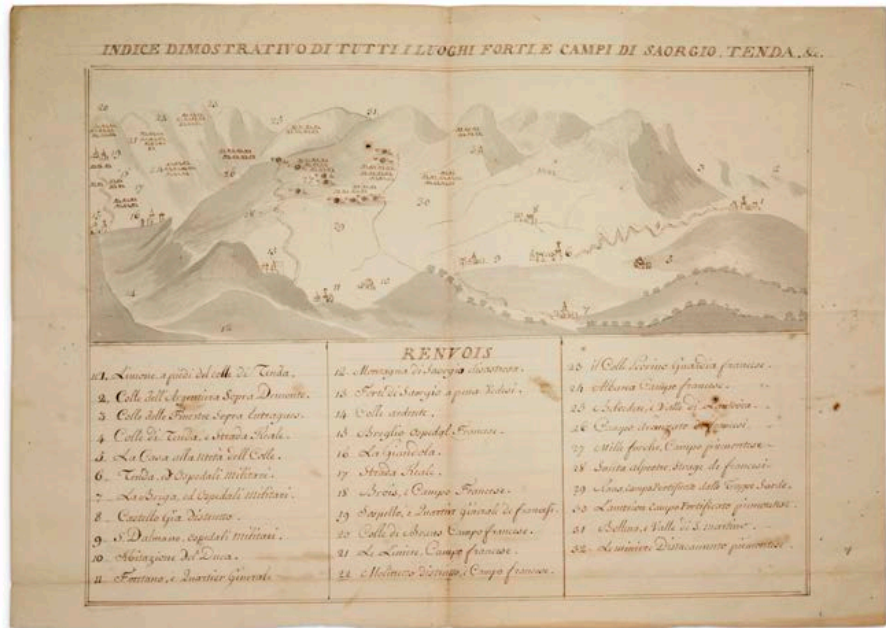 INDICE DIMOSTRATIVO DI TUTTI I LUOGHI FORTI, E CAMPI DI SAORGIO, TENDA, &c.
RENVOIS
N.1. Limone, a piedi del colle di Tenda.
2. Colle dell'Argentera Sopra Demonte.
3 Colle delle Finestre Sopra Entragues.
4 Colle di Tenda, e Strada Reale.
5 La Casa alla metà dell Colle.
6 Tenda, ed Ospedali militari.
7 La Briga, ed Ospedali militari.
8 Castello Gia Distrutto.
9 S. Dalmazo, ospedali militari.
10 Abitazione Del Duca.
11 Fontano, e Quartier Generale
12 Montagna di Saorgio disastrosa.
13 Forte di Saorgio a pena Vedesi.
14 Colle ardente.
15 Breglio ospedal Francese.
16 La Giandola.
17 Strada Reale.
18 Brois, e Campo Francese.
19 Sospello, e Quartier Generale de francesi.
20 Colle di Braus Campo francese.
21 Le Limire, Campo francese.
22 Molinetto Distrutto, e Campo francese.
23 il Colle Guardia francese.
24 Albarea Campo francese.
25 Belvedere, e Valle di
26 Campo avanzato de francesi
27 Mille forche, Campo piemontese.
28 Salita alpestre, Strage de francesi.
29 Raus, campo fortificato dalle Truppe Sarde.
30 Lauthion campo fortificato piemontese
31 Bollena, e Valle di S. martino.
32 Le miniere Distacamento piemontese.